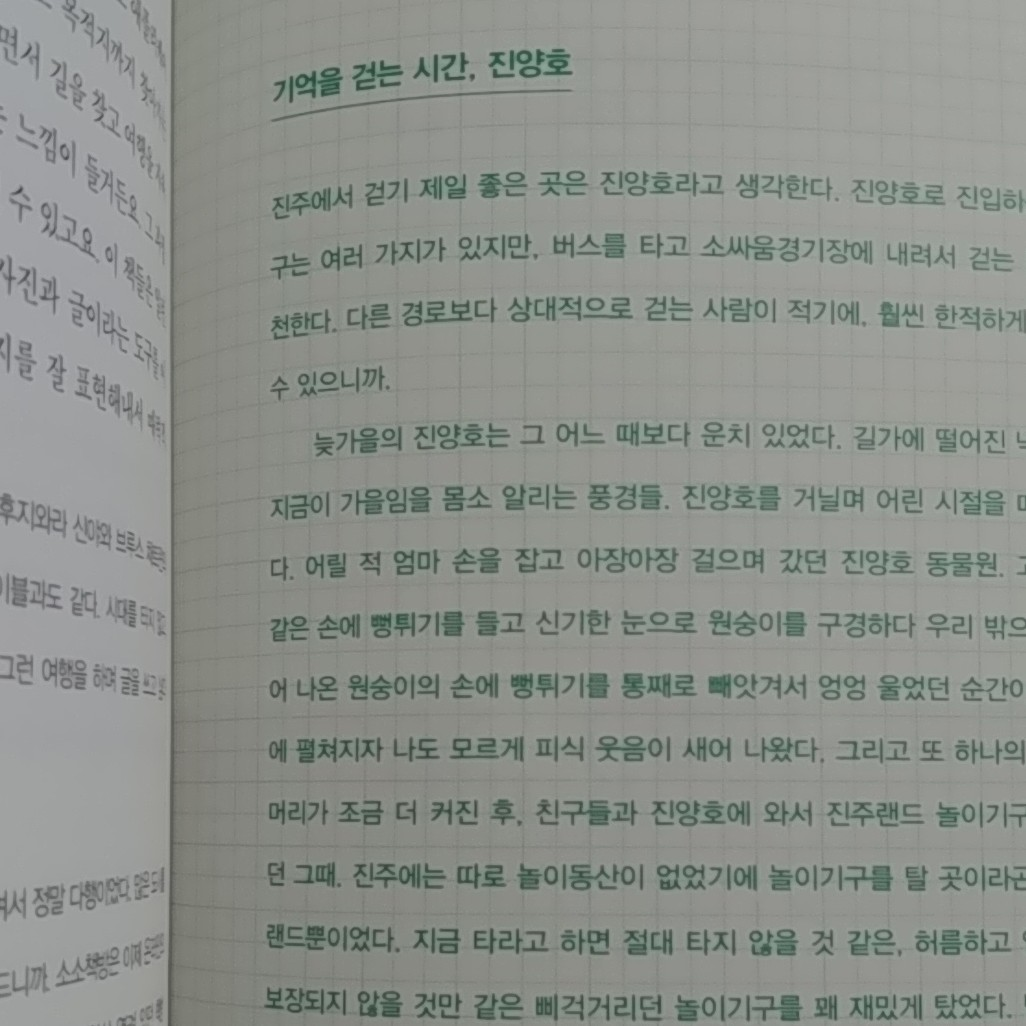 목적지까지
면서 길을 찾고 여행을
느낌이 들거든요. 그래서
수 있고요. 이 책들은
사진과 글이라는 도구를
지를 잘 표현해내서
후지와라 신야와 브루스
이블과도 같다. 시대를 타지 않고
그런 여행을 하며 글을 쓰고
겨서 정말 다행이었다. 많은
드니까. 소소책방은 이제
기억을 걷는 시간, 진양호
진주에서 걷기 제일 좋은 곳은 진양호라고 생각한다. 진양호로 진입하
구는 여러 가지가 있지만, 버스를 타고 소싸움경기장에 내려서 걷는
천한다. 다른 경로보다 상대적으로 걷는 사람이 적기에, 훨씬 한적하게
수 있으니까.
늦가을의 진양호는 그 어느 때보다 운치 있었다. 길가에 떨어진
지금이 가을임을 몸소 알리는 풍경들. 진양호를 거닐며 어린 시절을
다. 어릴 적 엄마 손을 잡고 아장아장 걸으며 갔던 진양호 동물원.
같은 손에 뻥튀기를 들고 신기한 눈으로 원숭이를 구경하다 우리 밖으
어 나온 원숭이의 손에 뻥튀기를 통째로 빼앗겨서 엉엉 울었던 순간이
에 펼쳐지자 나도 모르게 피식 웃음이 새어 나왔다. 그리고 또 하나의
머리가 조금 더 커진 후, 친구들과 진양호에 와서 진주랜드 놀이기구
던 그때. 진주에는 따로 놀이동산이 없었기에 놀이기구를 탈 곳이라곤
랜드뿐이었다. 지금 타라고 하면 절대 타지 않을 것 같은, 허름하고
보장되지 않을 것만 같은 삐걱거리던 놀이기구를 꽤 재밌게 탔었다.